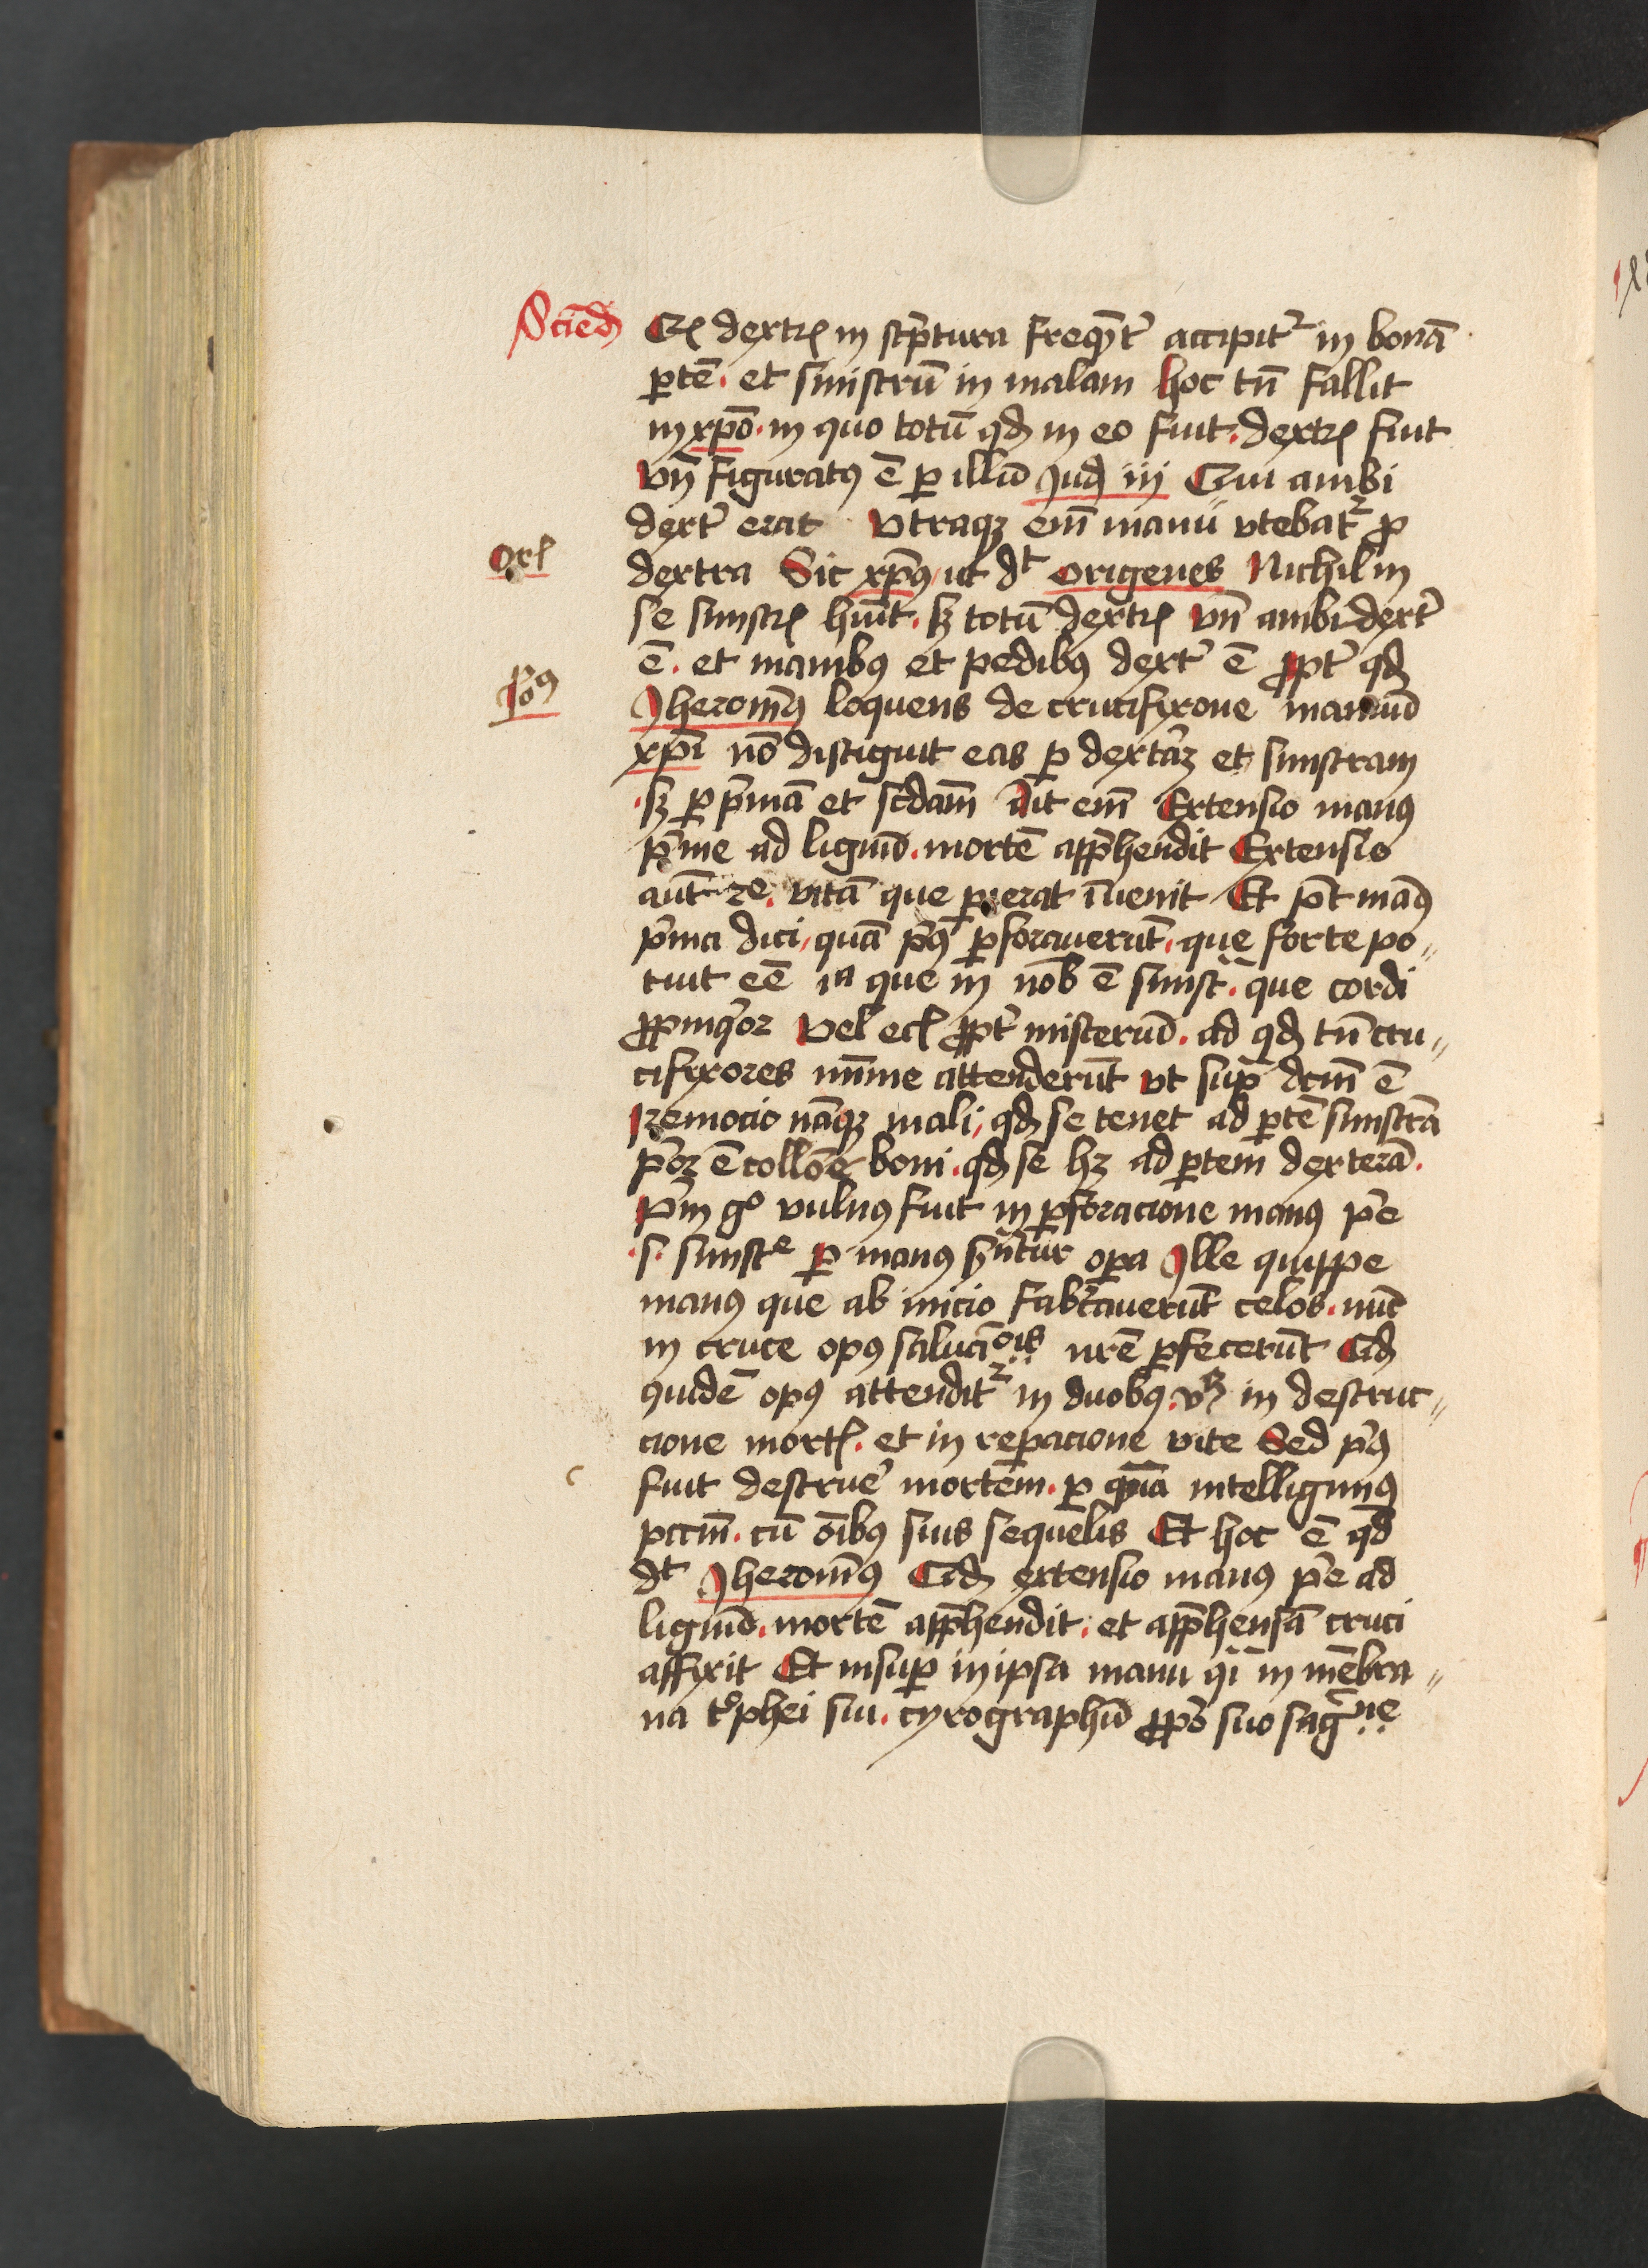 Sciend
Qz dextrꝫ in sc̄ptura freqn̄t᷑ accipit᷑ in bonā
ptē. et sinistrū in malam hoc tn̄ fallit
in xp̄o. in quo totū qd in eo fuit. dextrꝫ fuit
vn̄ figuratꝰ ē p illū Jud iij Qui ambi
dext᷑ erat Vtraqꝫ em̄ manu vtebat᷑ p
Or
dextra Sic xp̄ꝰ ut dt origenes Nichil in
se sinistrꝫ huīt. sꝫ totū dextrꝫ vn̄ ambidext᷑
ē. et manibꝰ et pedibꝰ dext᷑ ē ppt᷑ qd
Jheronīꝰ loquens de crucifixone manuū
xp̄i nō distiguit eas p dext᷑aꝫ et sinistram
sꝫ p p̄mā et scdam̄ Ait em̄ Extensio manꝰ
p̄me ad lignū. mortē app̄hendit Extensio
aut̄ 2e. vitā que pierat īuenit Et pt̄ manꝰ
p̄ma dici, quā pꝰ pforauerūt. que forte po〃
tuit eē ia que in nob ē sinist. que cordi
ppinqͥor Vel ecꝫ ppt᷑ misteriū. ad qd tn̄ cru〃
cifixores mīme attenderūt vt sup̄ dcm̄ ē
Remocio nāqꝫ mali, qd se tenet ad ptē sinistrā
p̄or ē collōe boni. qd se hꝫ ad ptem dexterā.
P̄m gͦ vulnꝰ fuit in pforacione manꝰ p̄e
.s. sinistᵉ p manꝰ sn̄tur opa Jlle quippe
manꝰ que ab inicio fabͥcauerūt celos. nūc
in cruce opꝰ saluacōis nr̄e pfecerūt Qd
quidē opꝰ attendit᷑ in duobꝰ. vꝫ in destruc〃
cione mort. et in repacione vite Sed pꝰ
fuit destrue᷑ mortem. p quā intelligimꝰ
pccm̄. cū oībꝰ suis sequelis Et hoc ē qd
dt Jheronīꝰ Qd extensio manꝰ p̄e ad
lignū. mortē app̄hendit. et app̄hensā cruci
affixit Et insup in ipsa manu qͥ in mēbra〃
na tͦphei sui. cyrographū pp̄o suo sagͥne